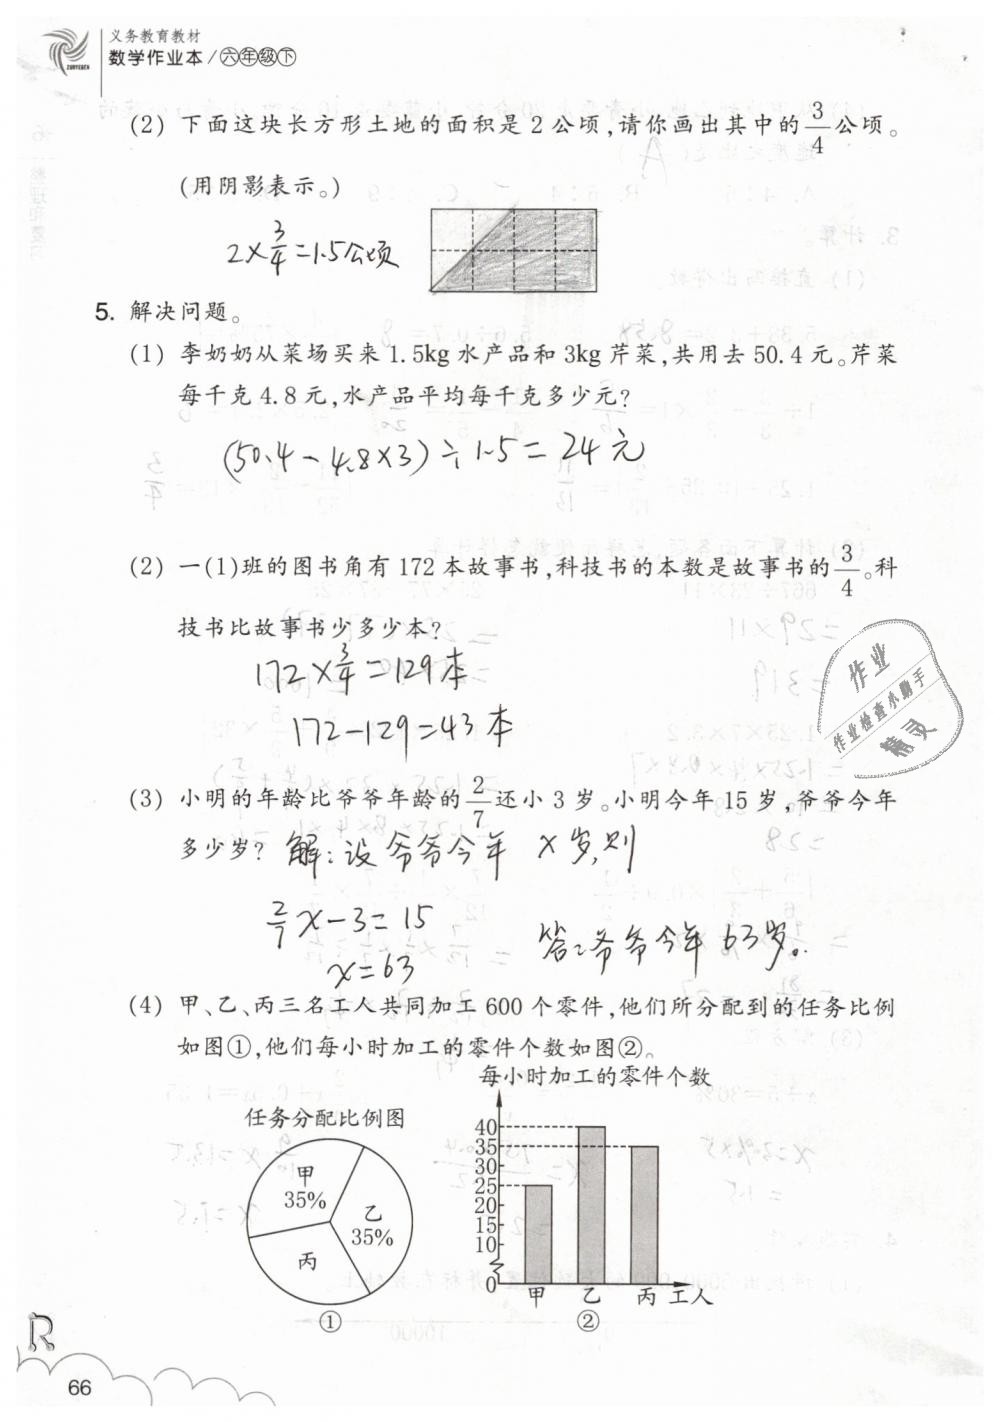 义务教育教材
数学作业本/六年级下
(2) 下面这块长方形土地的面积是2公顷,请你画出其中的3/4公顷。
(用阴影表示。)
2×3/4=1.5公顷
5. 解决问题。
(1) 李奶奶从菜场买来1.5kg水产品和3kg芹菜,共用去50.4元。芹菜
每千克4.8元,水产品平均每千克多少元?
(50.4-4.8×3)÷1.5=24元
(2) 一(1)班的图书角有172本故事书,科技书的本数是故事书的3/4。科
技书比故事书少多少本?
172×3/4=129本
172-129=43本
(3) 小明的年龄比爷爷年龄的2/7还小3岁。小明今年15岁,爷爷今年
多少岁? 解:设爷爷今年 x岁,则
2/7x-3=15
x=63
答:爷爷今年63岁.
(4) 甲、乙、丙三名工人共同加工600个零件,他们所分配到的任务比例
如图①,他们每小时加工的零件个数如图②。
任务分配比例图
甲
35%
乙
35%
丙
①
每小时加工的零件个数
40
35
30
25
20
15
10
0
甲 乙 丙 工人
②
作业
作业检查小助手
精灵
R
66